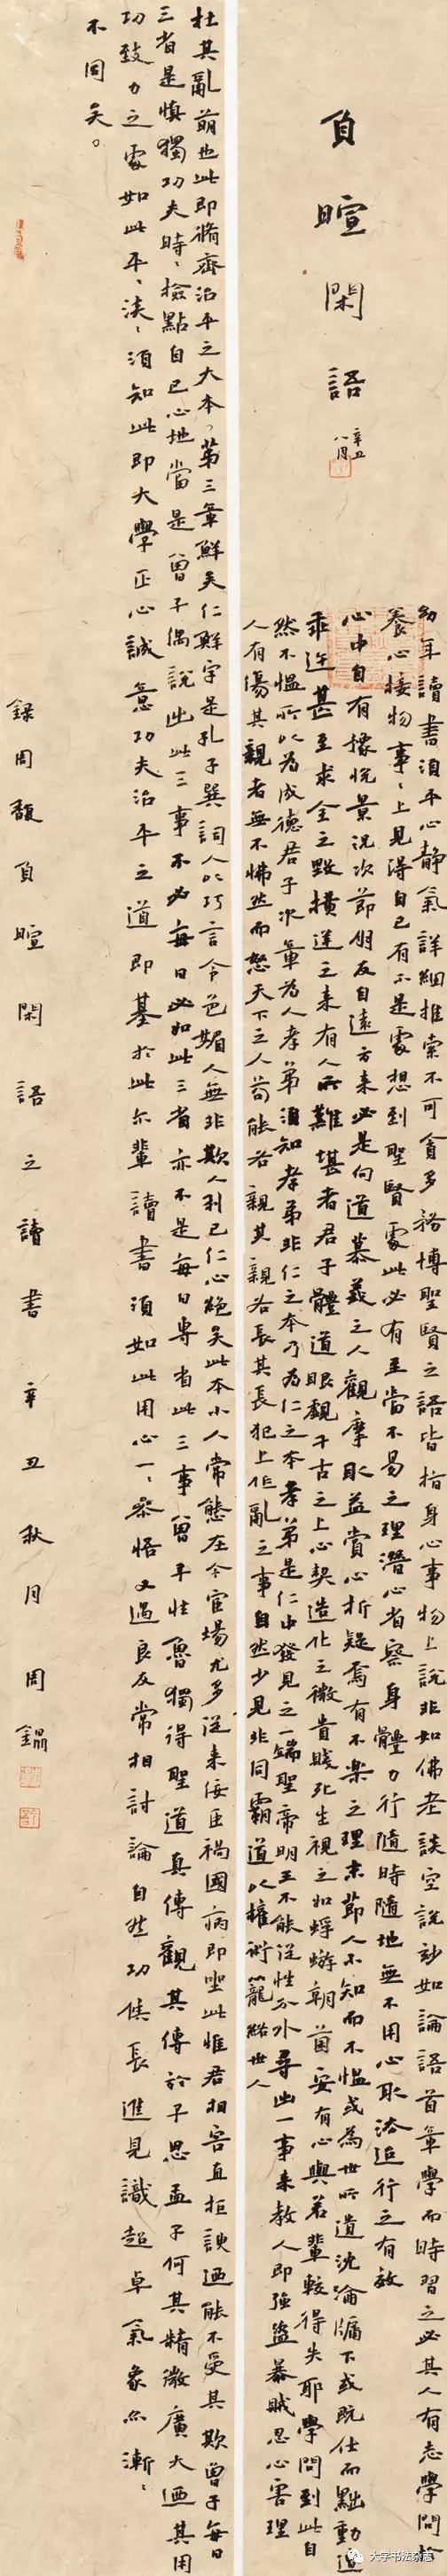 負暄閑語
辛丑
八月
幼年讀書須平心靜氣詳細推索不可貪多務博聖賢之語皆指身心事物上說非如佛老談空說妙如論語首章學而時習之必其人有志學問於
養心接物事〻上見得自己有不是處想到聖賢處此必有至當不易之理潛心省察身體力行隨時隨地無不用心取法迨行之有效
心中自有懌悅景況次節朋友自遠方來必是向道慕義之人觀摩取益賞心析疑焉有不樂之理末節人不知而不慍或為世所遺沈淪牖下或既仕而黜動遭
乖迕甚至求全之毀橫逆之來有人所難堪者君子體道眼觀千古之上心契造化之微貴賤死生視之如蜉蝣朝菌安有心與若輩較得失耶學問到此自
然不慍所以為成德君子次章為人孝弟須知孝弟非仁之本乃為仁之本孝弟是仁中發見之一端聖帝明王不能從性分外尋出一事來教人即強盜暴賊忍心害理
人有傷其親者無不怫然而怒天下之人苟能各親其親各長其長犯上作亂之事自然少見非同霸道以權術籠絡世人
杜其亂萌也此即脩齊治平之大本。第三章鮮矣仁鮮字是孔子巽詞人以巧言令色媚人無非欺人利己仁心絕矣此本小人常態在今官場尤多從來佞臣禍國病即坐此惟君相容直拒諛迺能不受其欺曾子每日
三省是慎獨功夫時〻檢點自己心地當是曾子偶說出此三事不必每日必如此三省亦不是每日專省此三事曾子性魯獨得聖道真傳觀其傳於子思孟子何其精微廣大迺其用
功致力之處如此平〻淡〻須知此即大學正心誠意功夫治平之道即基於此尔輩讀書須如此用心一〻察悟又過良友常相討論自然功候長進見識超卓氣象亦漸〻
不同矣。
錄周馥負暄閑語之讀書 辛丑秋月 周鑷
大学书法杂志